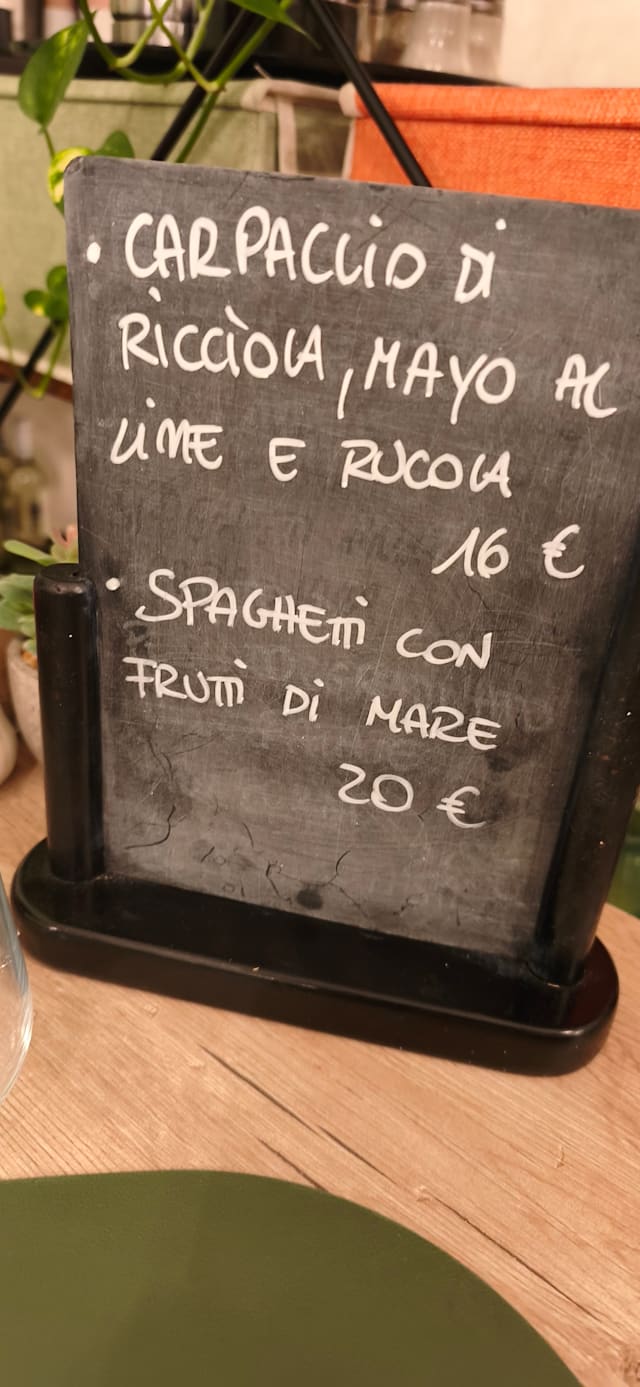 • CARPACCIO DI
RICCIOLA, MAYO AL
LIME E RUCOLA
16 €
• SPAGHETTI CON
FRUTTI DI MARE
20 €